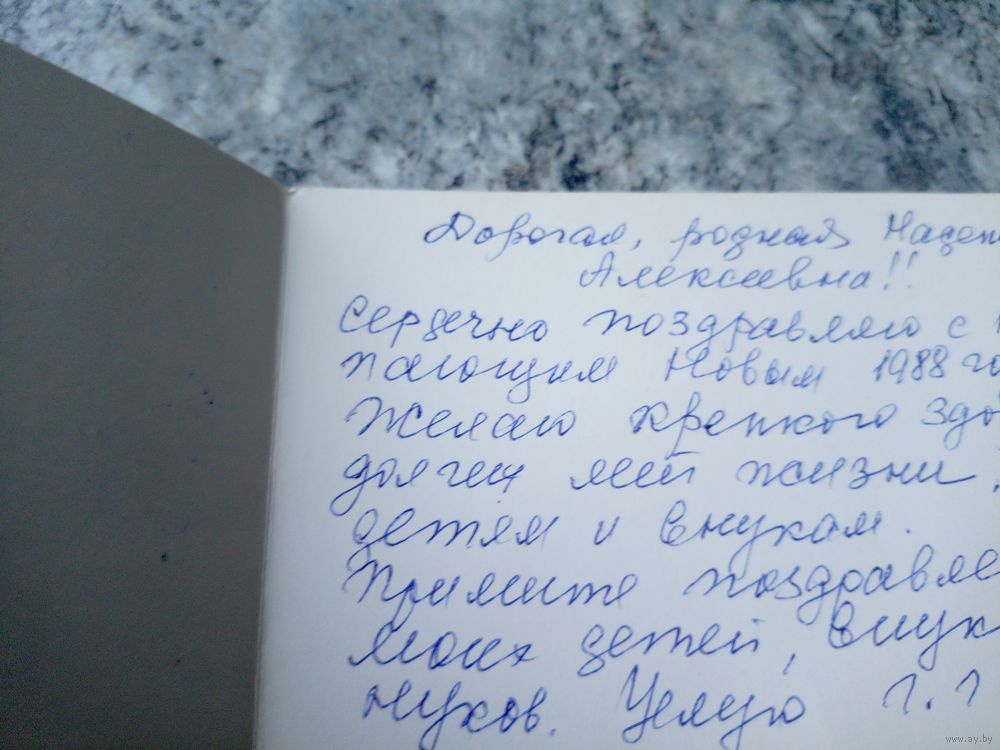 Дорогая, родная Надеж
Алексеевна!!
Сердечно поздравляю с
пающим Новым 1988 го
Желаю крепкого здо
долгих лет жизни
детям и внукам.
Примите поздравле
моих детей, внук
нуков. Целую
www.ay.by